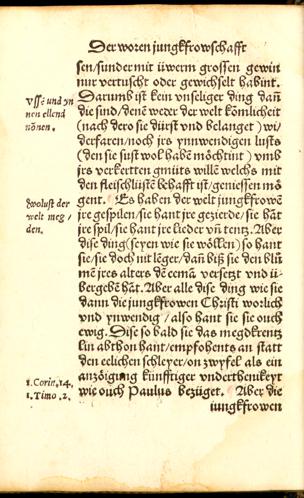 Der woren jungkfrowschafft
sen/sunder mit üwerm grossen gewin
nur vertuscht oder gewichselt habint.
Darumb ist kein vnseliger ding dañ
die sind/denē weder der welt kömlicheit
(nach dero sie dürst vnd belanget) wi/
derfaren/noch jrs ynnwendigen lusts
(den sie sust wol habē möchtint) vmb
jrs verkertten gmüts willē welchs mit
den fleischlüstē behafft ist/geniessen mö
gent. Es haben der welt jungkfrowē
jre gespilen/sie hant jre gezierde/sie hāt
jre spil/sie hant jre lieder vñ tentz. Aber
dise ding (seyen wie sie wöllen) so hant
sie/sie doch nit leger/dañ biß sie den blů
mē jres alters dē eemā versetzt vnd ü-
bergebē hāt. Aber alle dise ding wie sie
dann die jungkfrowen Christi worlich
vnd ynwendig/also hant sie sie ouch
ewig. Dise so bald sie das megdkrentz
lin abthon hant/empfohents an statt
den eelichen schleyer/on zwyfel als ein
anzöigung künfftiger vnderthenikeyt
wie ouch Paulus bezüget. Aber die
jungkfrowen
Vssē und yn
nen ellend
nōnen.
Wolust der
welt meg/
den.
1. Corin. 14.
1. Timo. 2.